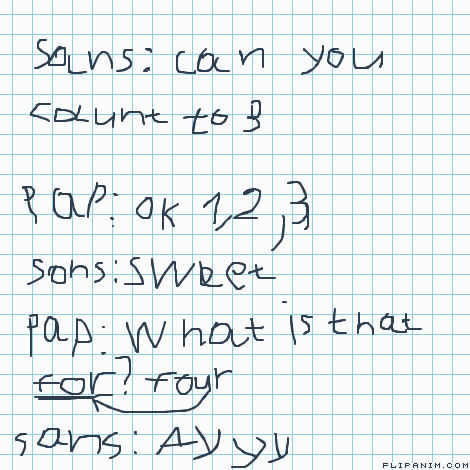 sans: can you
count to 3
PAP: ok 1,2,3
sans: sweet
pap: What is that
for? four
sans: Ayyy
FLIPANIM.COM